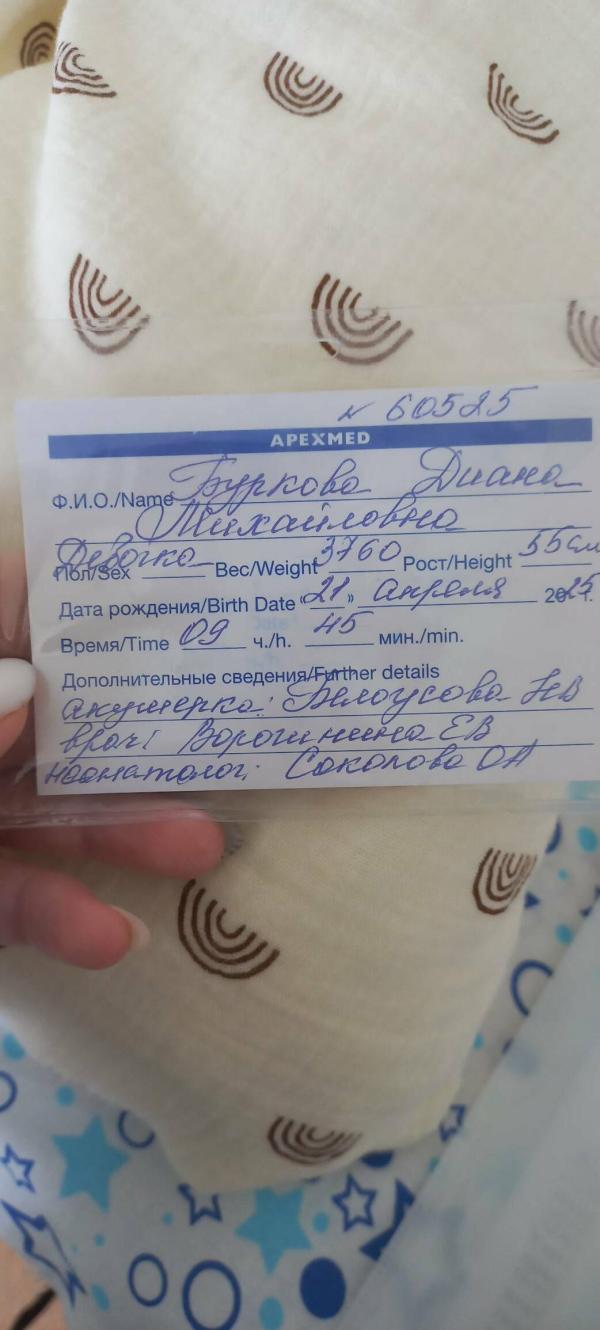 № 60525
APEXMED
Ф.И.О./Name Буркова Диана
Михайловна
Девочка
Пол/Sex Вес/Weight 3760 Рост/Height 55см
Дата рождения/Birth Date «21» апреля 2025 г.
Время/Time 09 ч./h. 45 мин./min.
Дополнительные сведения/Further details
акушерка: Белоусова НВ
врач: Воронинина ЕВ
неонатолог: Соколова ОА